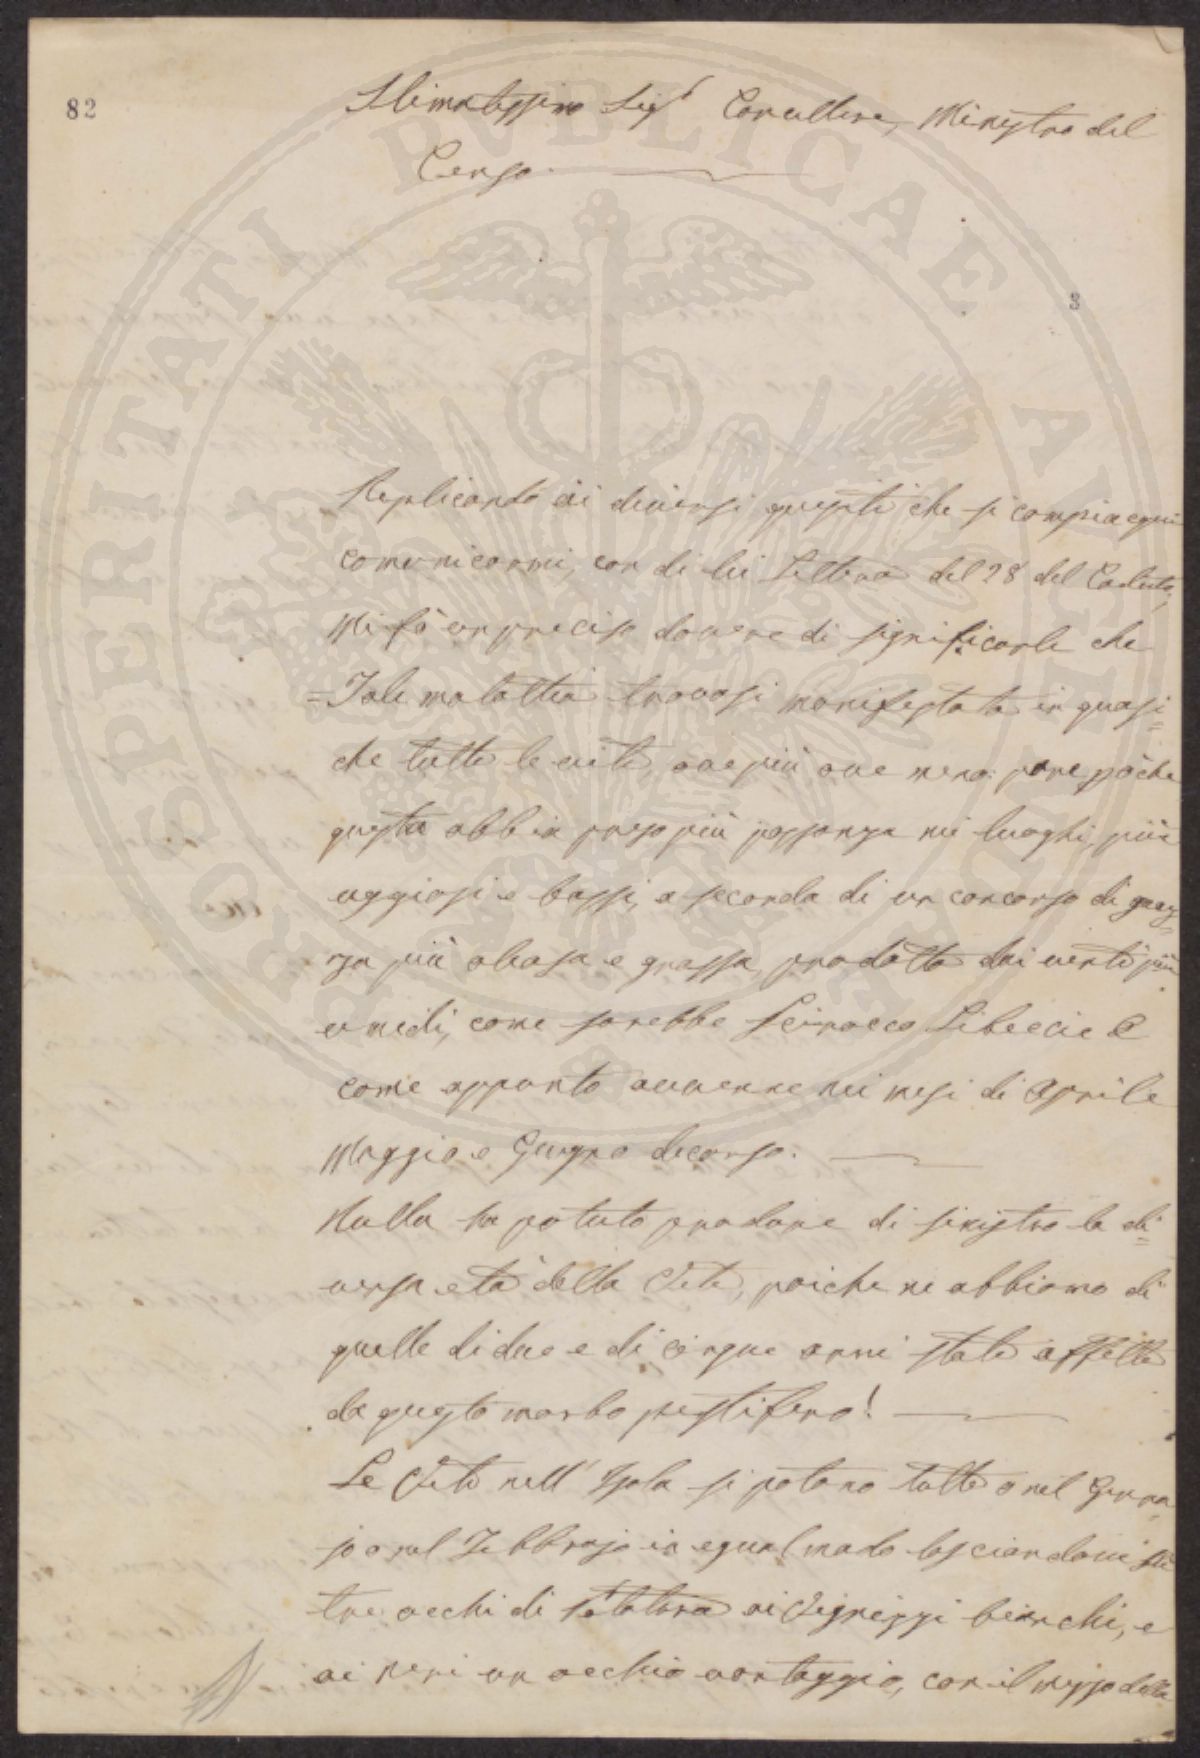 82
Stimatissimo Sigr Cancelliere, Ministro del
Censo.
3
Replicando ai diversi quesiti che si compiacque
comunicarmi, con di lei Lettera del 28 del Caduto,
Mi fò un preciso dovere di significarle che
=Tale malattia trovasi manifestata in quasi=
che tutte le viti, ove più ove meno: pare poiche
questa abbia preso più possanza nei luoghi più
uggiosi e bassi, a seconda di un concorso di guaz=
za più e grassa, prodotta dai venti più
umidi, come sarebbe Scirocco Libeccio &
come appunto avvenne nei mesi di Aprile
Maggio e Giugno decorso.
Nulla ha potuto produrre di sinistro la di=
versa età della Vite, poiche ne abbiamo di
quelle di due e di cinque anni state affette
da questo morbo pestifero!
Le Viti nell' Isola si potano tutte o nel Genna=
jo o nel Febbrajo in egual modo lasciandovi
tre occhi di ai Vigneggi bianchi, e
ai neri un occhio vantaggio, con il mezzo della
PROSPERITATI PVBLICAE AVGENDAE